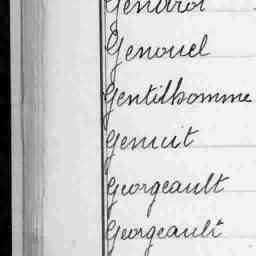 Gendrot
Genouel
Gentilhomme
Genuit
Georgeault
Georgeault